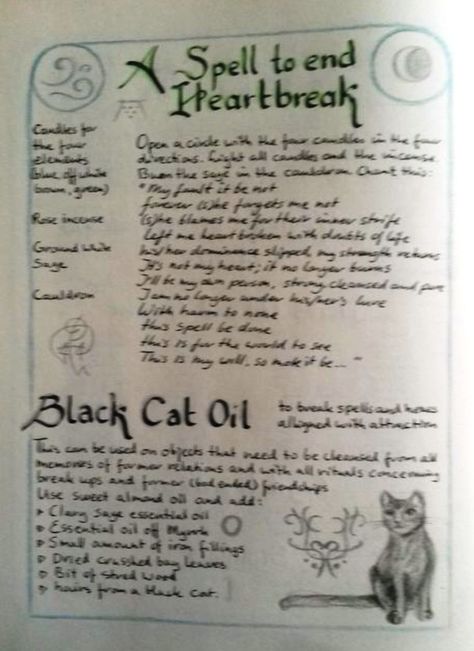 A Spell to end
Heartbreak
Candles for
the four
elements
(blue, off white
brown, green)
Rose incense
Ground white
Sage
Cauldron
Open a circle with the four candles in the four
directions. Light all candles and the incense.
Burn the sage in the cauldron. Chant this:
"My fault it be not
forever (s)he forgets me not
(s)he blames me for their inner strife
left me heart broken with doubts of life
his/her dominance slipped, my strength returns
It's not my heart; it no longer burns
I'll be my own person, strong, cleansed and pure
I am no longer under his/her's lure
With harm to none
this spell be done
this is for the world to see
This is my will, so mote it be... "
Black Cat Oil
to break spells and hexes
alligned with attraction
This can be used on objects that need to be cleansed from all
memories of former relations and with all rituals concerning
break ups and former (bad ended) friendships
Use sweet almond oil and add:
▹ Clary Sage essential oil
▹ Essential oil off Myrrh
▹ Small amount of iron fillings
▹ Dried crusshed bay leaves
▹ Bit of stred wood
▹ hairs from a black cat.